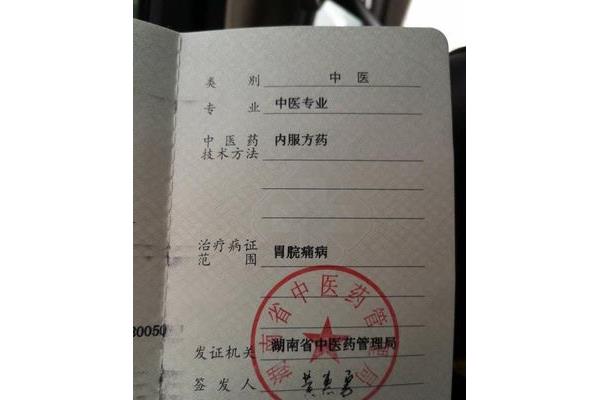 类 别 中 医
专 业 中医专业
中 医 药
技术方法 内服方药
治疗病证
范 围 胃脘痛病
湖南省中医药管理局
30050
发证机关 湖南省中医药管理局
签 发 人